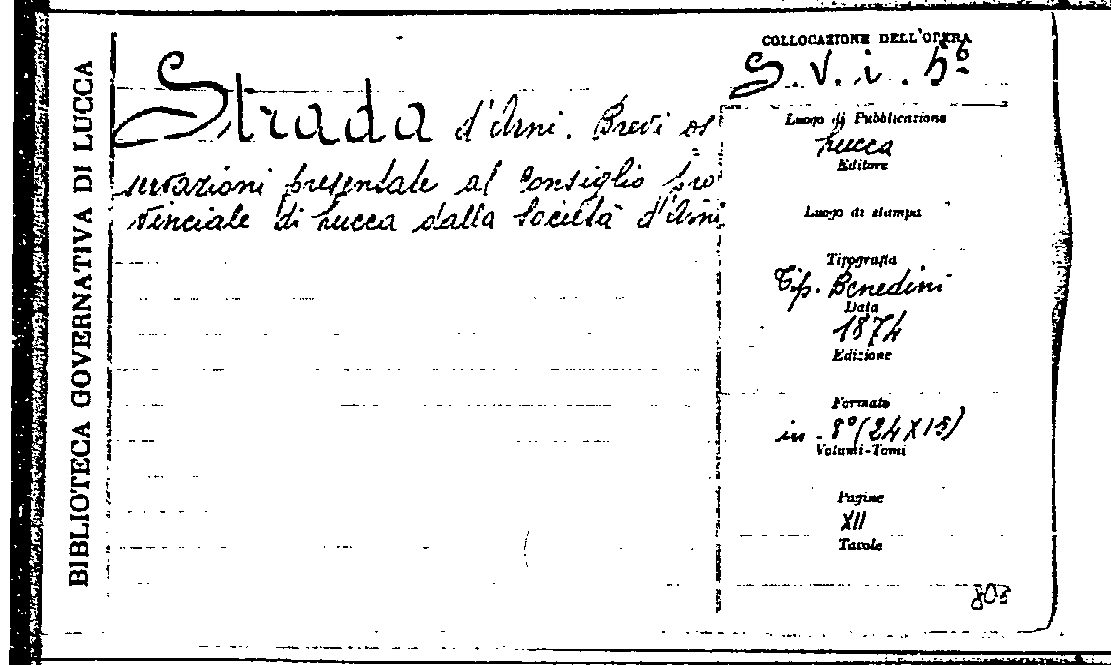 BIBLIOTECA GOVERNATIVA DI LUCCA
Strada d'Arni. Brevi os
servazioni presentate al Consiglio pro
vinciale di Lucca dalla Società d'Arni
COLLOCAZIONE DELL'OPERA
S. V. i. 5⁶
Luogo di Pubblicazione
Lucca
Editore
Luogo di stampa
Tipografia
Tip. Benedini
Data
1874
Edizione
Formato
in - 8° (24X15)
Volumi-Tomi
Pagine
XII
Tavole
803